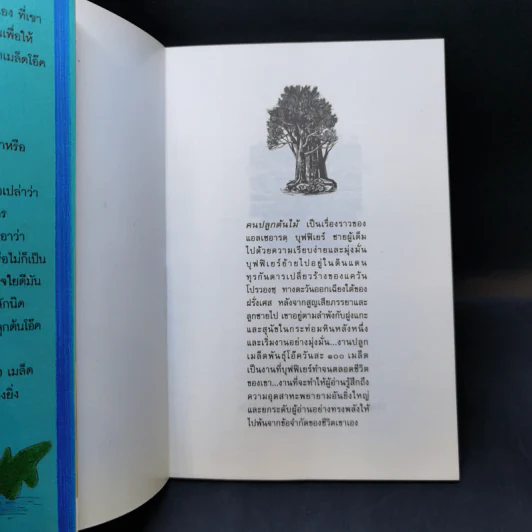 อง ที่เขา
นเพื่อให้
เมล็ดโอ๊ค
าหรือ
งเปล่าว่า
ร
อาว่า
รือไม่ก็เป็น
จใยดีมัน
ักนิด
ลูกต้นโอ๊ค
ง เมล็ด
งยิ่ง
คนปลูกต้นไม้ เป็นเรื่องราวของ
แอลเซอารด บุฟฟิเยร์ ชายผู้เต็ม
ไปด้วยความเรียบง่ายและมุ่งมั่น
บุฟฟิเยร์ย้ายไปอยู่ในดินแดน
ทุรกันดารเปลี่ยวร้างของแคว้น
โปรวองซ์ ทางตะวันออกเฉียงใต้ของ
ฝรั่งเศส หลังจากสูญเสียภรรยาและ
ลูกชายไป เขาอยู่ตามลำพังกับฝูงแกะ
และสุนัขในกระท่อมหินหลังหนึ่ง
และเริ่มงานอย่างมุ่งมั่น...งานปลูก
เมล็ดพันธุ์โอ๊ควันละ ๑๐๐ เมล็ด
เป็นงานที่บุฟฟิเยร์ทำจนตลอดชีวิต
ของเขา...งานที่จะทำให้ผู้อ่านรู้สึกถึง
ความอุตสาหะพยายามอันยิ่งใหญ่
และยกระดับผู้อ่านอย่างทรงพลังให้
ไปพ้นจากข้อจำกัดของชีวิตเขาเอง